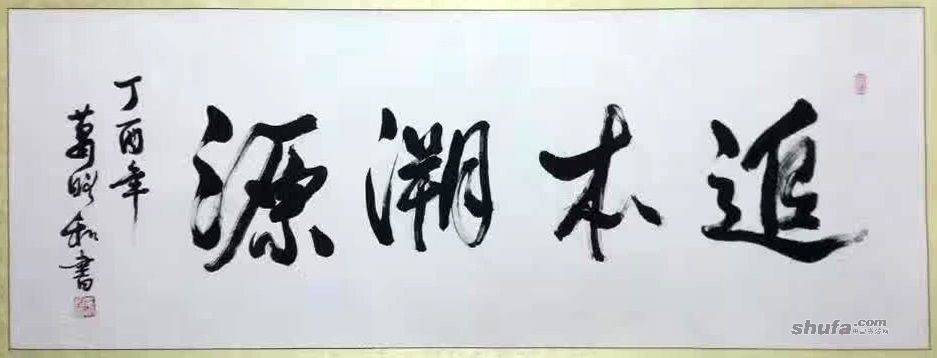 追本溯源
丁酉年
葛晓和書
shufa.com